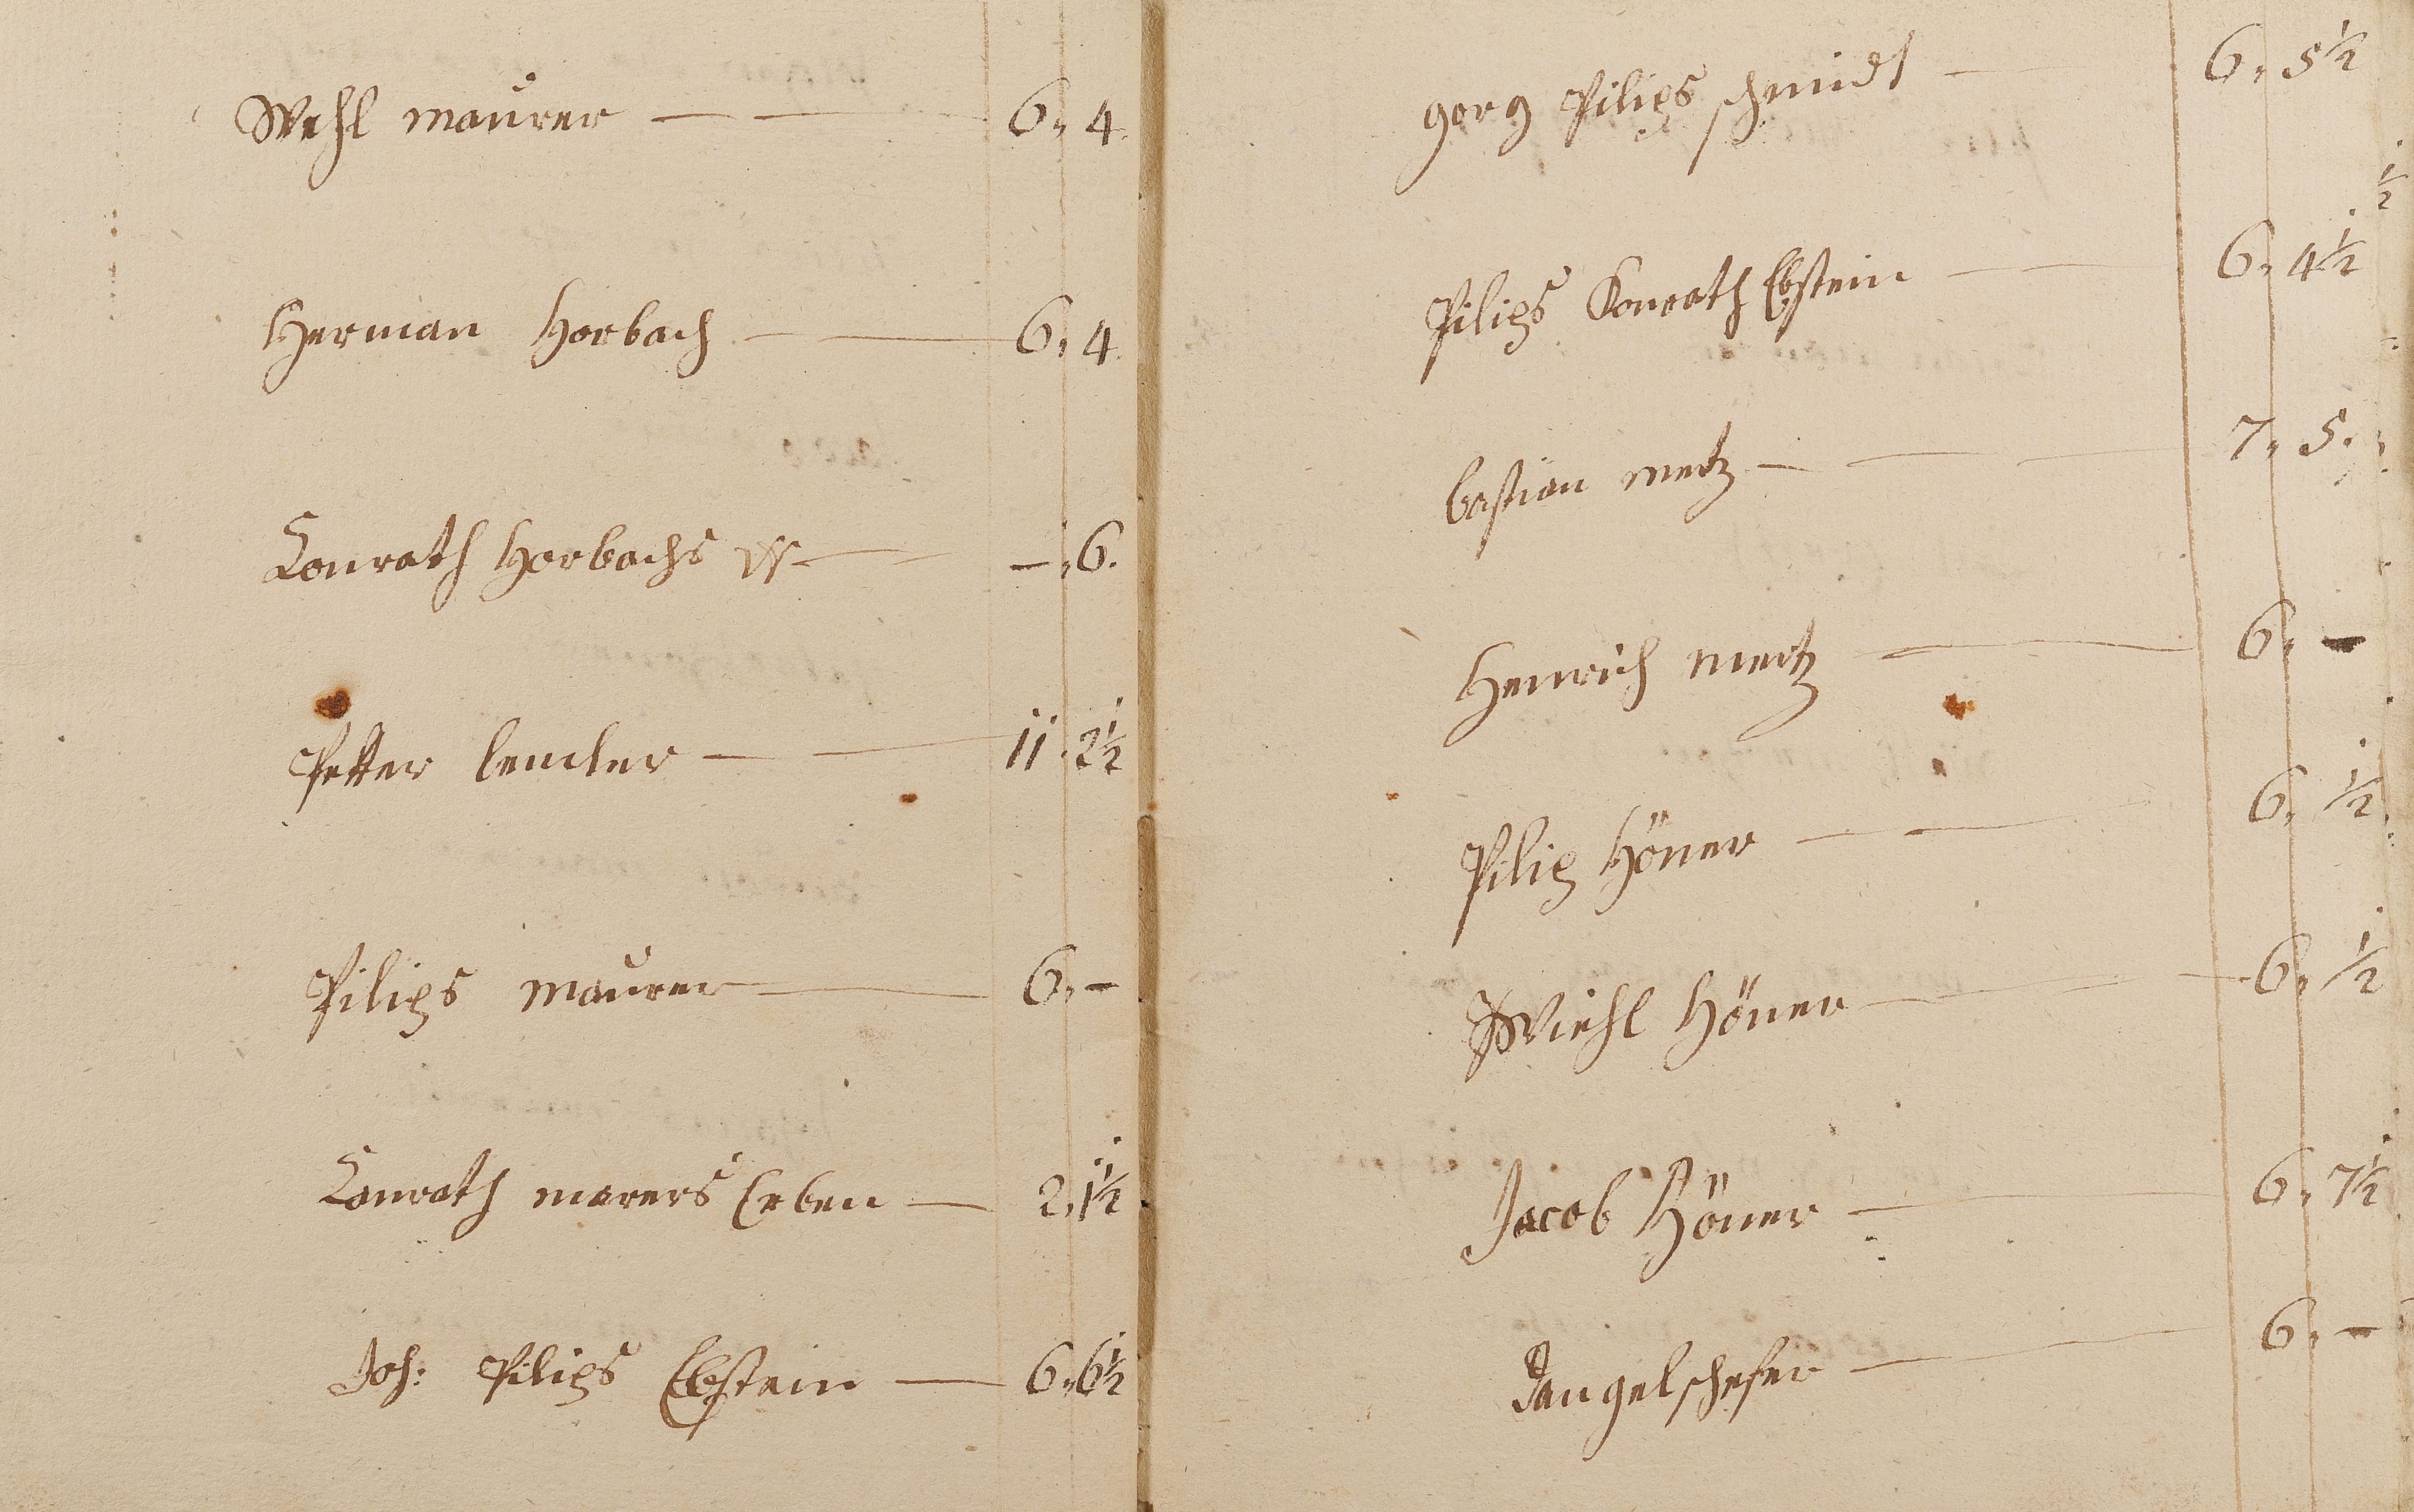 Wehl maurer — — 6, 4.
Herman Horbach — — 6, 4.
Conrath Horbachs W — — —, 6.
Petter lencler — — 11. 2½
Pilips maurer — 6, —
Conrath marers Erben — 2, 1½
Joh: Pilips Ebstein — 6, 6½
gorg Pilips schmidt — — 6, 5½
½
Pilips Konrath Ebstein — — 6, 4½
bastian mertz — — — 7, 5.
Henrich mertz — — 6, —
Pilip Höner — — 6, ½
Wiehl Höner — — 6, ½
Jacob Höner — — 6, 7½
Dangelschefer — — 6, —